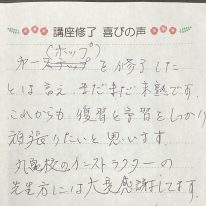 講座修了 喜びの声
(ホップ)
サーステップを修了した
とは言え まだまだ未熟です。
これからも 復習と予習をしっかり
頑張りたいと思います。
九段校のインストラクターの
先生方には大変感謝してます。